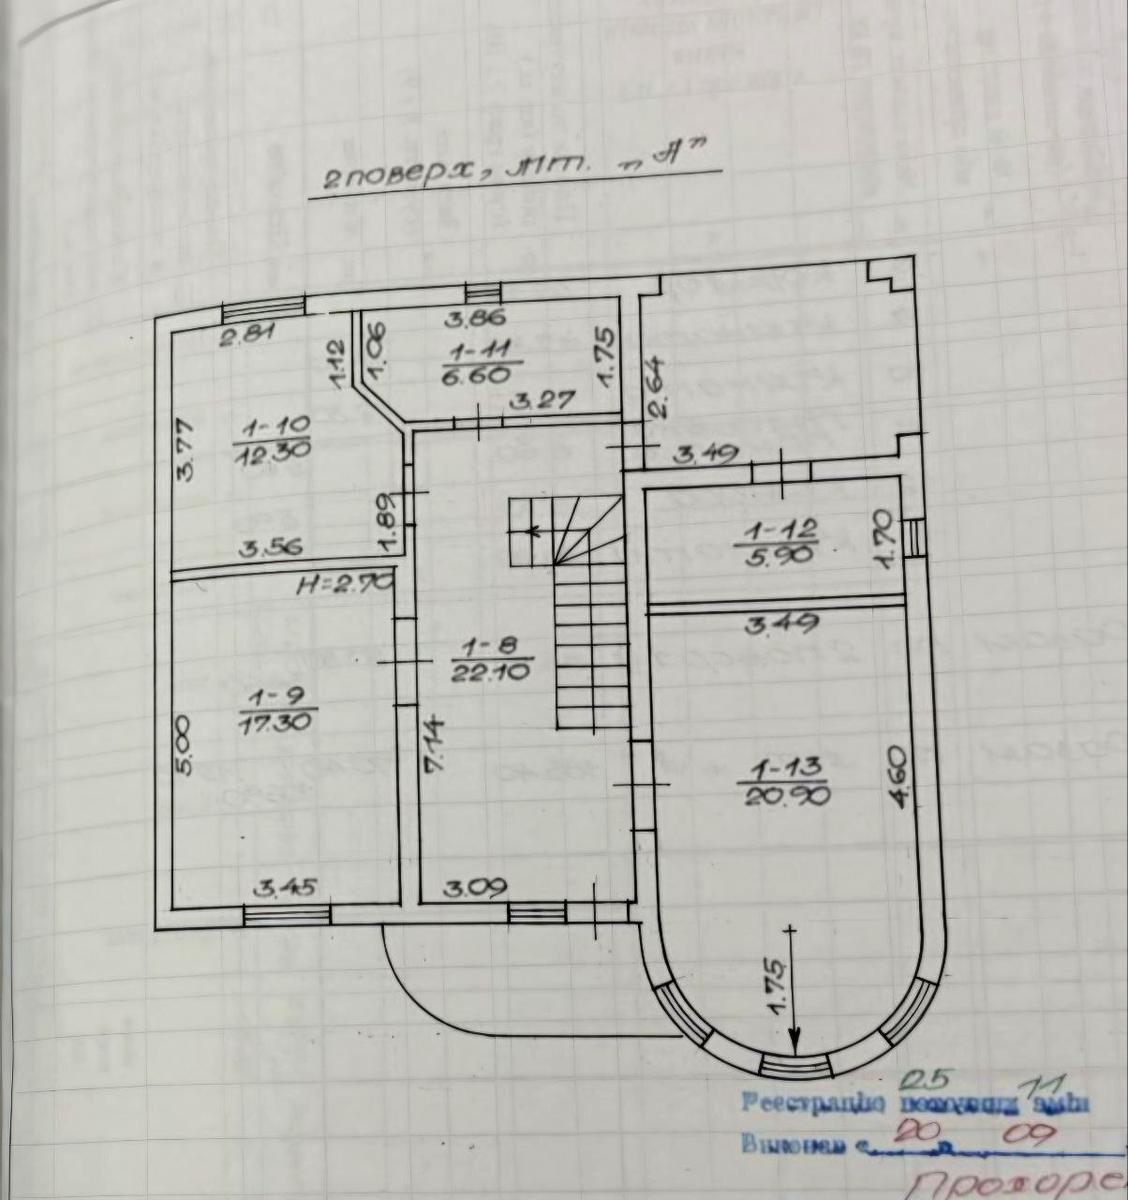 2 поверх, літ. „А”
2.81
3.86
1.12
1.06
1-11
6.60
1.75
2.64
3.27
3.77
1-10
12.30
3.49
1.89
3.56
H=2.70
1-12
5.90
1.70
3.49
1-8
22.10
1-9
17.30
5.00
7.14
1-13
20.90
4.60
3.45
3.09
1.75
25 11
Реєстрацію поточних змін
20 09
Виконав